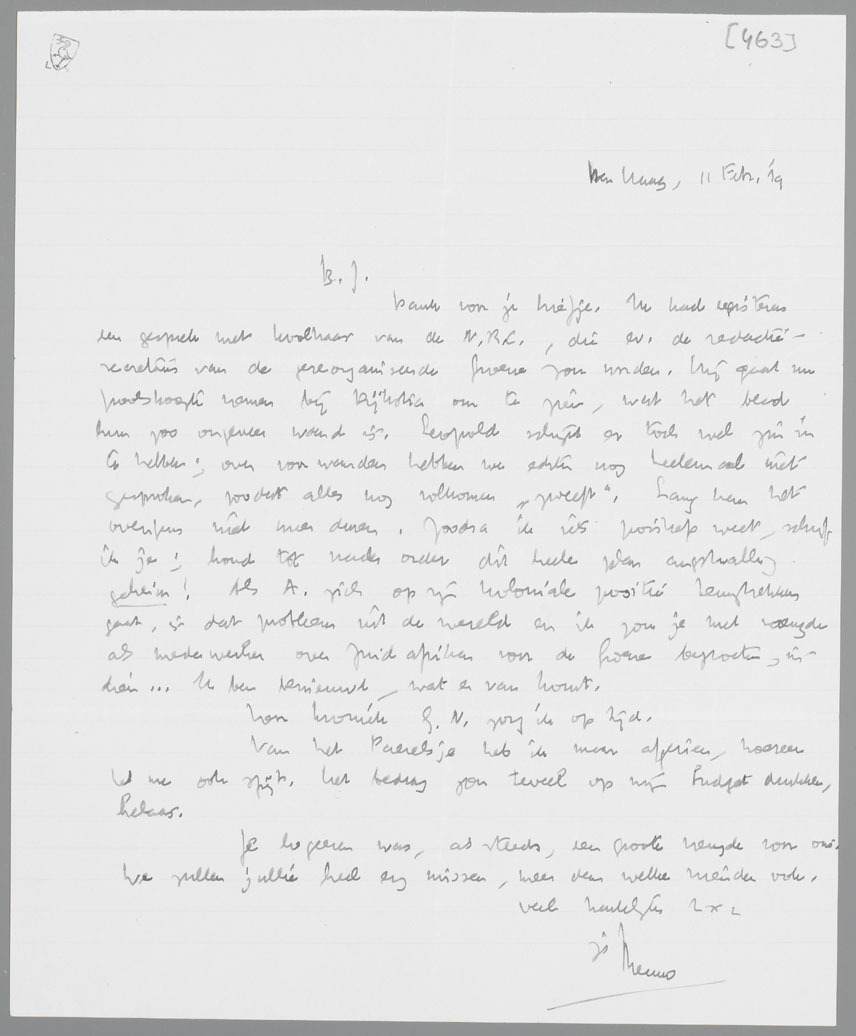 [463]
Den Haag, 11 Febr. '39
B. J.
Dank voor je briefje. Ik had gisteren
een gesprek met Kwolhaar van de N.R.C., die ev. de redactie-
secretaris van de gereorganiseerde Groene zou worden. Hij gaat nu
poolshoogte nemen bij Dijkstra om te zien, wat het bead
hun zoo ongeveer waard is. Leopold schijnt er toch wel zin in
te hebben; over voorwaarden hebben we echter nog heelemaal niet
gesproken, zoodat alles nog volkomen „zweeft". Lang kan het
overigens niet meer duren. Zoodra ik iets positiefs weet, schrijf
ik je; houd tot nader order dit heele plan angstvallig
geheim! Als A. zich op zijn koloniale positie terugtrekken
gaat, is dat probleem uit de wereld en ik zou je met vreugde
als medewerker over Zuid Afrika voor de Groene begroeten, in-
dien... Ik ben benieuwd, wat er van komt.
Voor kroniek G. N. zorg ik op tijd.
Van het Pareltje heb ik maar afgezien, hoezeer
het me ook spijt. Het bedrag zou teveel op mijn budget drukken,
helaas.
Je logeeren was, als steeds, een groote vreugde voor ons.
We zullen jullie heel erg missen, meer dan welke vrienden ook.
Veel hartelijks 2 x 2
je Menno